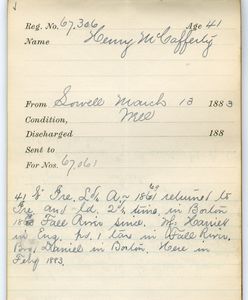 Reg. No. 67,306 Age 41
Name Henry McCafferty
From Lowell March 13 1883
Condition, Mee
Discharged 188
Sent to
For Nos. 67,061
41 y. Ire, Ldn A. 1861 69 returned to
Ire and ld. 2 time in Boston
18 Fall River since. M. Harriet
in Eng. hs. 1 time in Fall River,
Bro. Daniel in Boston. Here in
Feby 1883.